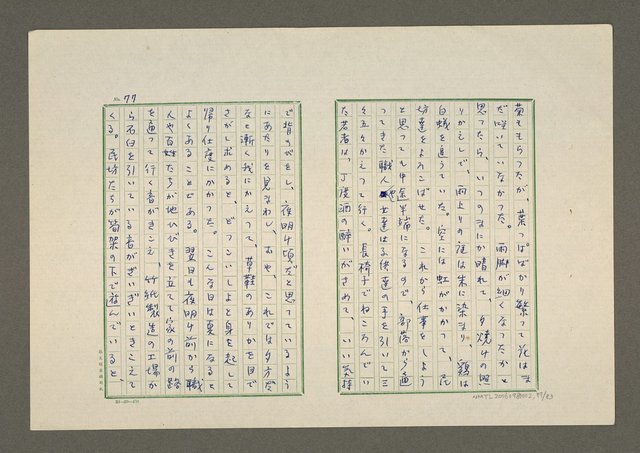 菊ももらったが、葉っぱばかり繁って花はま
だ咲いていなかった。雨脚が細くなったかと
思ったら、いつのまにか晴れて、夕焼けの照
りかえしで、雨上りの庭は朱に染まり、鶏は
白蟻を追うていた。空には虹がかかって、民
坊達をよろこばせた。これから仕事をしよう
と思っても中途半端になるので、部落から通
ってきた職人や女達は子供達の手を引いて三
々五々かえって行く。長椅子でねころんでい
た若者は、丁度酒の酔いがさめて、いい気持
No. 77
で背のびをし、夜明け頃だと思っているよう
にあたりを見まわし、おや、これでは夕方だ
なと漸く我にかえって、草鞋のありかを目で
さがし求めると、どっこいしょと身を起して
帰り仕度にかかった。こんな日は夏になると
よくあることである。翌日も夜明け前から職
人や百姓たちが地ひびきを立てて家の前の路
を通って行く音がきこえ、竹紙製造の工場か
ら石臼を引いている音がぎいぎいときこえて
くる。民坊たちが皆架の下で遊んでいると、
NMTL2006